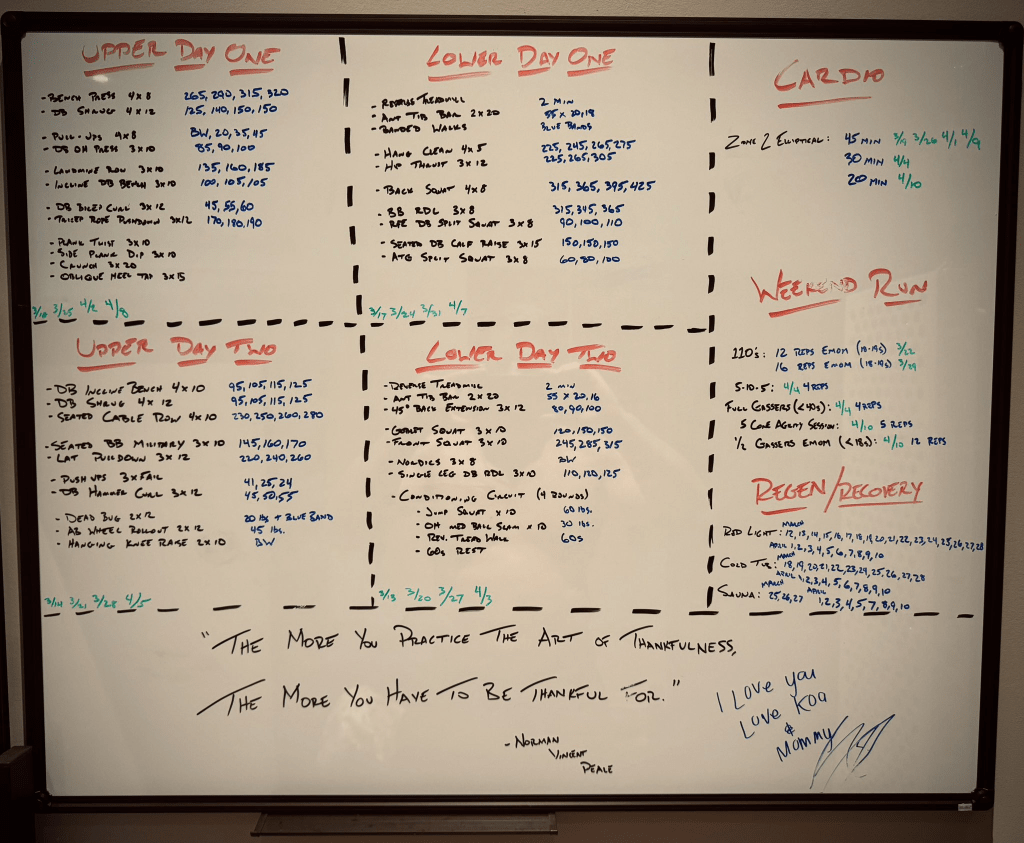 UPPER DAY ONE
- BENCH PRESS 4x8 265, 290, 315, 320
- DB SHRUG 4x12 125, 140, 150, 150
- PULL-UPS 4x8 BW, 20, 35, 45
- DB OH PRESS 3x10 85, 90, 100
- LANDMINE ROW 3x10 135, 160, 185
- INCLINE DB BENCH 3x10 100, 105, 105
- DB BICEP CURL 3x12 45, 55, 60
- TRICEP ROPE PUSHDOWN 3x12 170, 180, 190
- PLANK TWIST 3x10
- SIDE PLANK DIP 3x10
- CRUNCH 3x20
- OBLIQUE HEEL TAP 3x15
3/18 3/25 4/2 4/8
LOWER DAY ONE
- REVERSE TREADMILL 2 MIN
- ANT TIB BAR 2x20 55 x 20, 18
- BANDED WALKS BLUE BANDS
- HANG CLEAN 4x5 225, 245, 265, 275
- HIP THRUST 3x12 225, 265, 305
- BACK SQUAT 4x8 315, 365, 395, 425
- BB RDL 3x8 315, 345, 365
- RFE DB SPLIT SQUAT 3x8 90, 100, 110
- SEATED DB CALF RAISE 3x15 150, 150, 150
- ATG SPLIT SQUAT 3x8 60, 80, 100
3/17 3/24 3/31 4/7
CARDIO
ZONE 2 ELLIPTICAL: 45 MIN 3/19 3/26 4/1 4/9
30 MIN 4/4
200 MIN 4/10
WEEKEND RUN
110's: 12 REPS EMOM (18-19s) 3/22
16 REPS EMOM (18-19s) 3/29
5-10-5: 4/4 4 REPS
FULL GASSERS (<40s): 4/4 4 REPS
5 CONE AGILITY SESSION: 4/10 5 REPS
1/2 GASSERS EMOM (<18s): 4/10 12 REPS
UPPER DAY TWO
- DB INCLINE BENCH 4x10 95, 105, 115, 125
- DB SHRUG 4x12 95, 105, 115, 125
- SEATED CABLE ROW 4x10 230, 250, 260, 280
- SEATED BB MILITARY 3x10 145, 160, 170
- LAT PULLDOWN 3x12 220, 240, 260
- PUSH UPS 3xFAIL 41, 25, 24
- DB HAMMER CURL 3x12 45, 50, 55
- DEAD BUG 2x12 20 lbs + BLUE BAND
- AB WHEEL ROLLOUT 2x12 45 lbs.
- HANGING KNEE RAISE 2x10 BW
3/14 3/21 3/28 4/5
LOWER DAY TWO
- REVERSE TREADMILL 2 MIN
- ANT TIB BAR 2x20 55 x 20, 16
- 45° BACK EXTENSION 3x12 80, 90, 100
- GOBLET SQUAT 3x10 120, 150, 150
- FRONT SQUAT 3x10 245, 285, 315
- NORDICS 3x8 BW
- SINGLE LEG DB RDL 3x10 110, 120, 125
- CONDITIONING CIRCUIT (4 ROUNDS)
- JUMP SQUAT x10 60 lbs.
- OH MED BALL SLAM x10 30 lbs.
- REV. TREAD WALK 60s
- 60s REST
3/13 3/20 3/27 4/3
REGEN/RECOVERY
RED LIGHT: MARCH 12, 13, 14, 15, 16, 17, 18, 19, 20, 21, 22, 23, 24, 25, 26, 27, 28
APRIL 1, 2, 3, 4, 5, 6, 7, 8, 9, 10
COLD TUB: MARCH 18, 19, 20, 21, 22, 23, 24, 25, 26, 27, 28
APRIL 1, 2, 3, 4, 5, 6, 7, 8, 9, 10
SAUNA: MARCH 25, 26, 27 APRIL 1, 2, 3, 4, 5, 7, 8, 9, 10
"THE MORE YOU PRACTICE THE ART OF THANKFULNESS,
THE MORE YOU HAVE TO BE THANKFUL FOR."
- NORMAN
VINCENT
PEALE
I Love you
Love Koa
&
Mommy